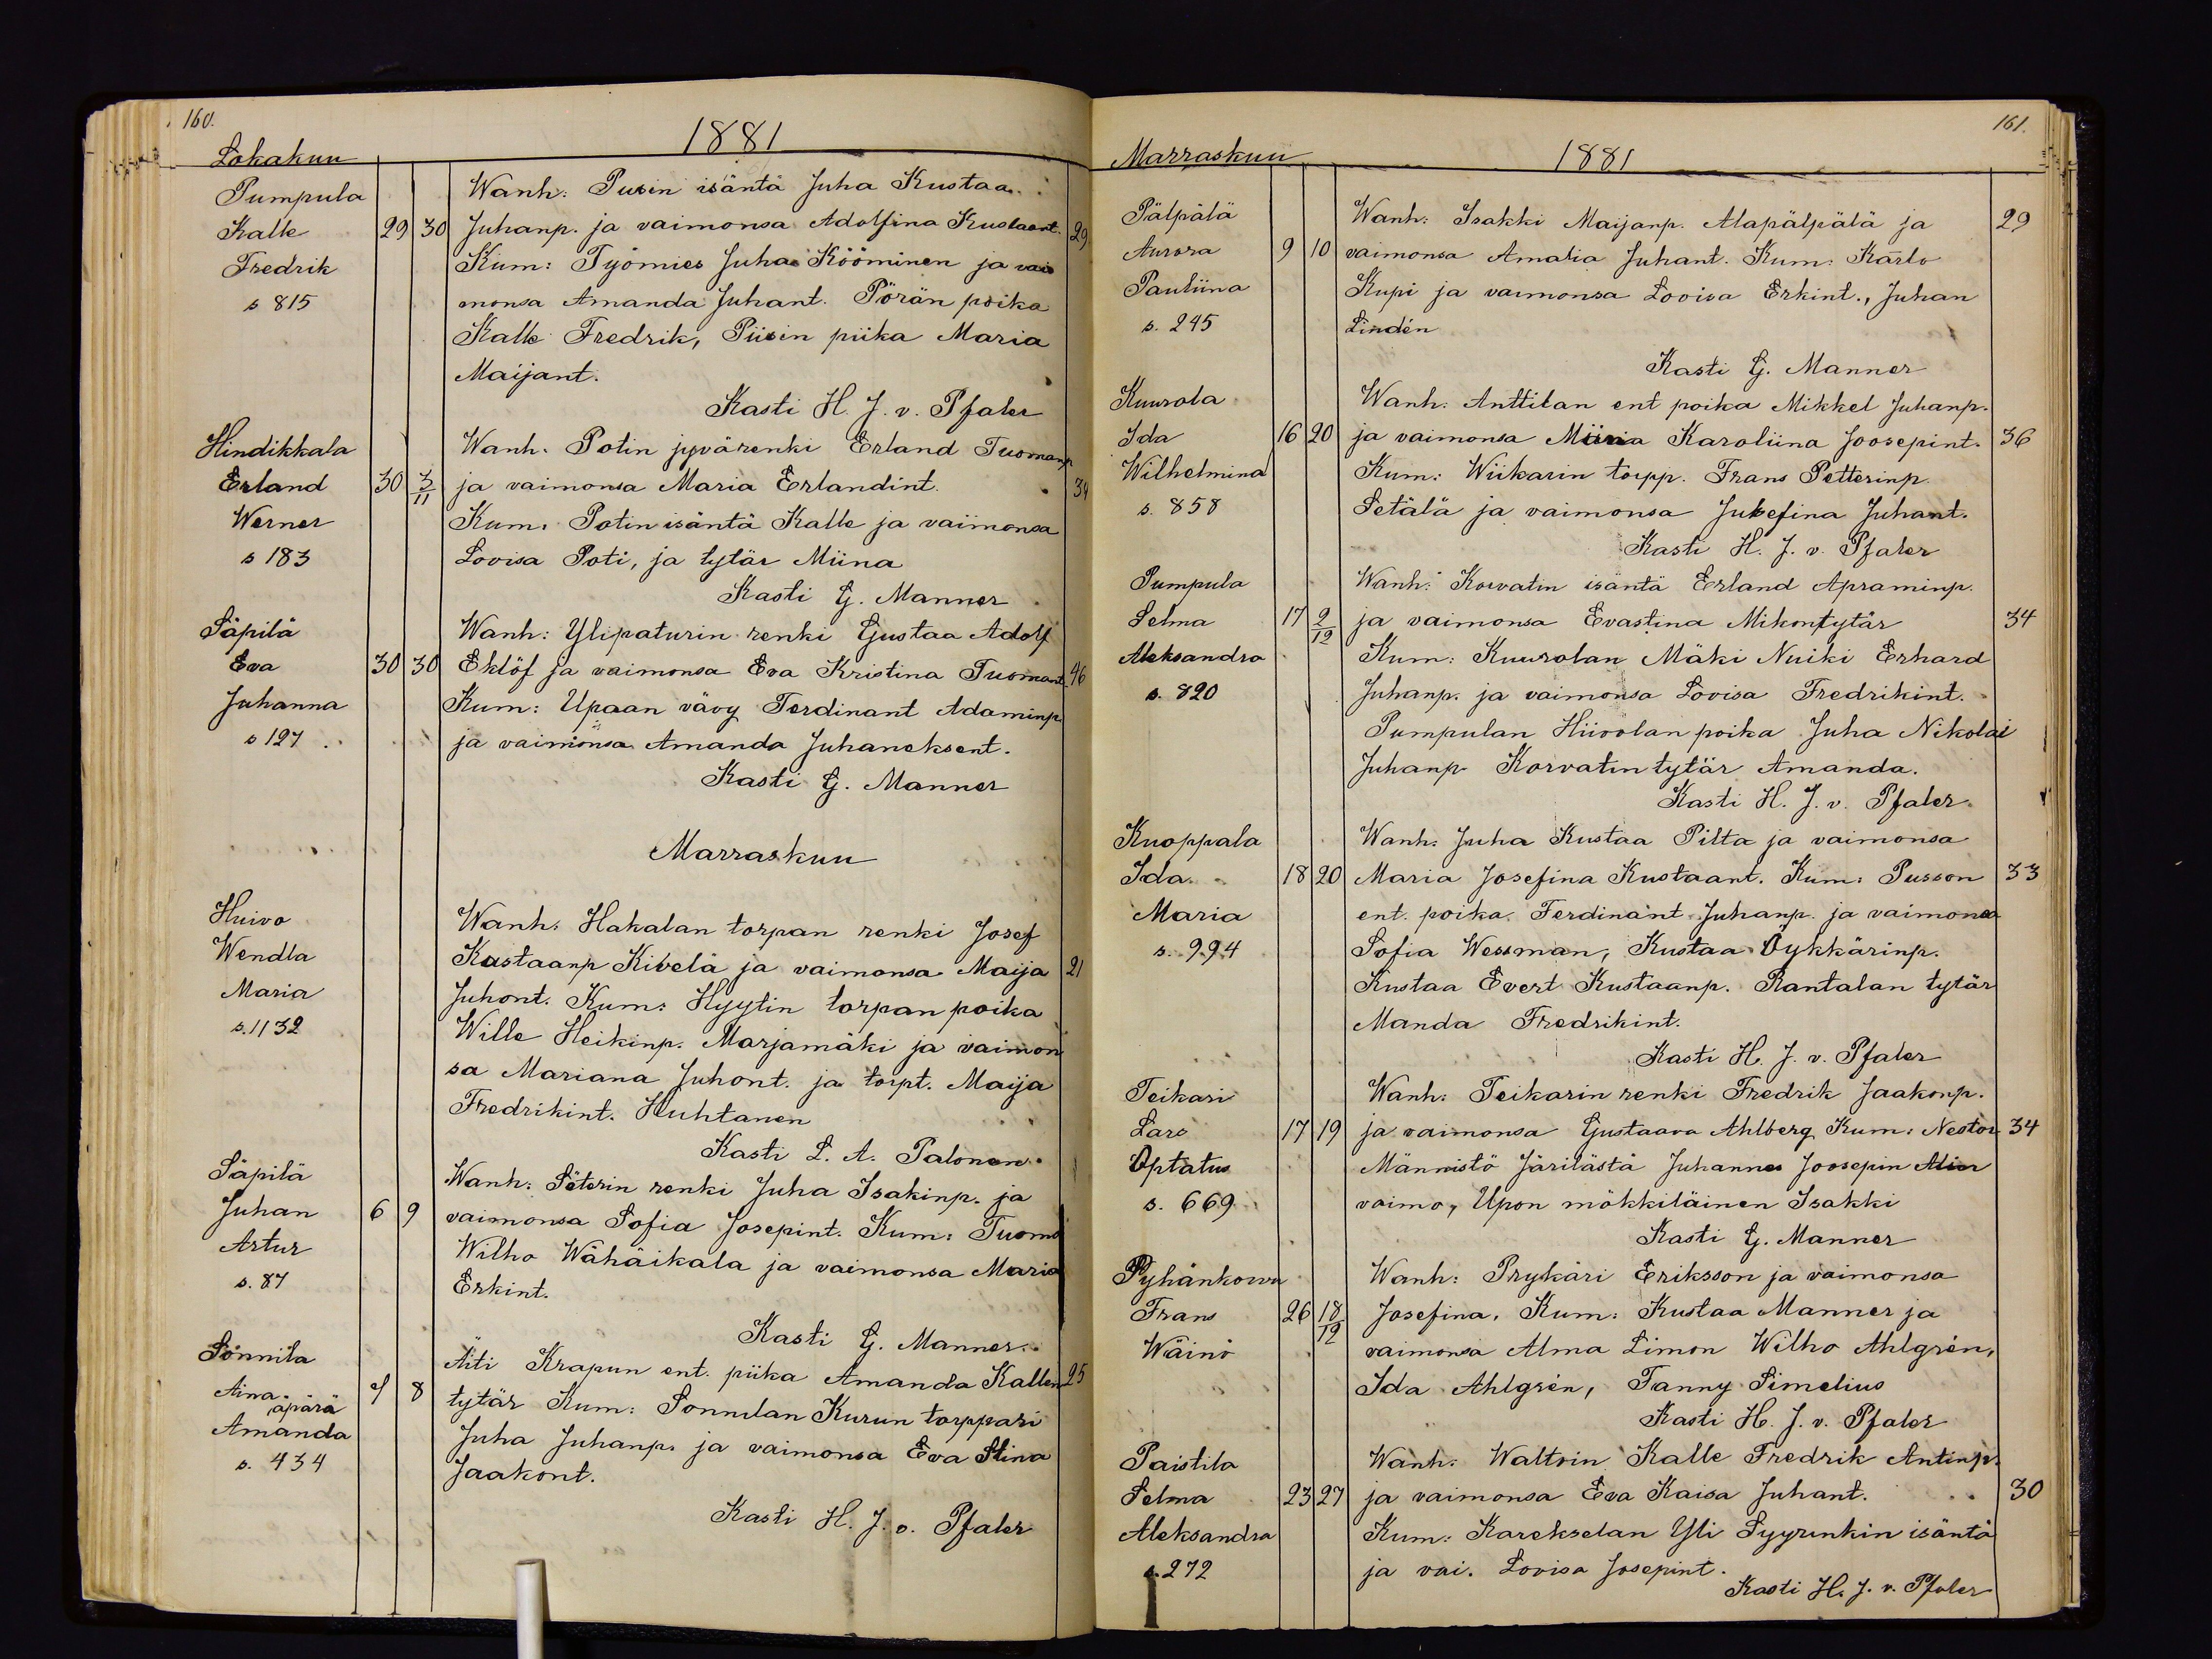 160.
Lokakuu 1881
Pumpula Wanh: Pusin isäntä Juha Kustaa
Kalle 29 30 Juhanp. ja vaimonsa Adolfina Kustaant. 29
Fredrik Kum: Työmies Juha Kööminen ja vai
s 815 monsa Amanda Juhant. Pörän poika
Kalle Fredrik, Piisin piika Maria
Maijant.
Kasti H. J. v. Pfaler
Hindikkala Wanh. Potin jyvärenki Erland Tuomanp
Erland 30 3/11 ja vaimonsa Maria Erlandint. 34
Werner Kum. Potin isäntä Kalle ja vaimonsa
s 183 Lovisa Poti, ja tytär Miina
Kasti G. Manner
Säpilä Wanh: Ylipaturin renki Gustaa Adolf
Eva 30 30 Eklöf ja vaimonsa Eva Kristina Tuomant. 46
Juhanna Kum: Upaan vävy Ferdinant Adaminp
s 127 ja vaimonsa Amanda Juhaneksent.
Kasti G. Manner
Marraskuu
Huivo Wanh. Hakalan torpan renki Josef
Wendla Kustaanp Kivelä ja vaimonsa Maija 21
Maria Juhont. Kum: Hyytin torpan poika
s. 1132 Wille Heikinp. Marjamäki ja vaimon
sa Mariana Juhont. ja torpt. Maija
Fredrikint. Huhtanen
Kasti L. A. Palonen
Säpilä Wanh: Säterin renki Juha Isakinp. ja
Juhan 6 9 vaimonsa Sofia Josepint. Kum: Tuomo
Artur Wilho Wähäikala ja vaimonsa Maria
s. 87 Erkint.
Kasti G. Manner
Sonnila Äiti Krapun ent. piika Amanda Kallen 25
Aina äpärä 7 8 tytär Kum: Sonnilan Kurun torppari
Amanda Juha Juhanp. ja vaimonsa Eva Stina
s. 434 Jaakont.
Kasti H. J. v. Pfaler
161.
Marraskuu 1881
Pälpälä Wanh: Isakki Maijanp. Alapälpälä ja 29
Aurora 9 10 vaimonsa Amalia Juhant. Kum: Karlo
Pauliina Kupi ja vaimonsa Lovisa Erkint., Juhan
s. 245 Lindén
Kasti G. Manner
Kuurola Wanh. Anttilan ent poika Mikkel Juhanp.
Ida 16 20 ja vaimonsa Maria Karoliina Joosepint. 36
Wilhelmina Kum: Wiikarin torpp. Frans Petterinp.
s. 858 Setälä ja vaimonsa Josefina Juhant.
Kasti H. J. v. Pfaler
Pumpula Wanh: Korvatin isäntä Erland Apraminp.
Selma 17 2/12 ja vaimonsa Evastina Mikontytär 34
Aleksandra Kum: Kuurolan Mäki Nuiki Erhard
s. 820 Juhanp. ja vaimonsa Lovisa Fredrikint.
Pumpulan Hiivolan poika Juha Nikolai
Juhanp Korvatin tytär Amanda.
Kasti H. J. v. Pfaler
Kuoppala Wanh. Juha Kustaa Pilta ja vaimonsa
Ida 18 20 Maria Josefina Kustaant. Kum: Pusson 33
Maria ent. poika Ferdinant Juhanp. ja vaimonsa
s. 994 Sofia Wessman, Kustaa Öykkärinp.
Kustaa Evert Kustaanp. Rantalan tytär
Manda Fredrikint.
Kasti H. J. v. Pfaler
Teikari Wanh: Teikarin renki Fredrik Jaakonp.
Lars 17 19 ja vaimonsa Gustaava Ahlberg Kum: Nestor 34
Optatus Männistö Järilästä Juhannes Joosepin
s. 669 vaimo, Upon mökkiläinen Isakki
Kasti G. Manner
Pyhänkorva Wanh: Prykäri Eriksson ja vaimonsa
Frans 26 18/12 Josefina. Kum: Kustaa Manner ja
Wäinö vaimonsa Alma Limon Wilho Ahlgrén,
Ida Ahlgrén, Fanny Simelius
Kasti H. J. v. Pfaler
Paistila Wanh. Waltrin Kalle Fredrik Antinp.
Selma 23 27 ja vaimonsa Eva Kaisa Juhant. 30
Aleksandra Kum: Karekselan Yli Syyrinkin isäntä
s. 272 ja vai. Lovisa Josepint.
Kasti H. J. v. Pfaler